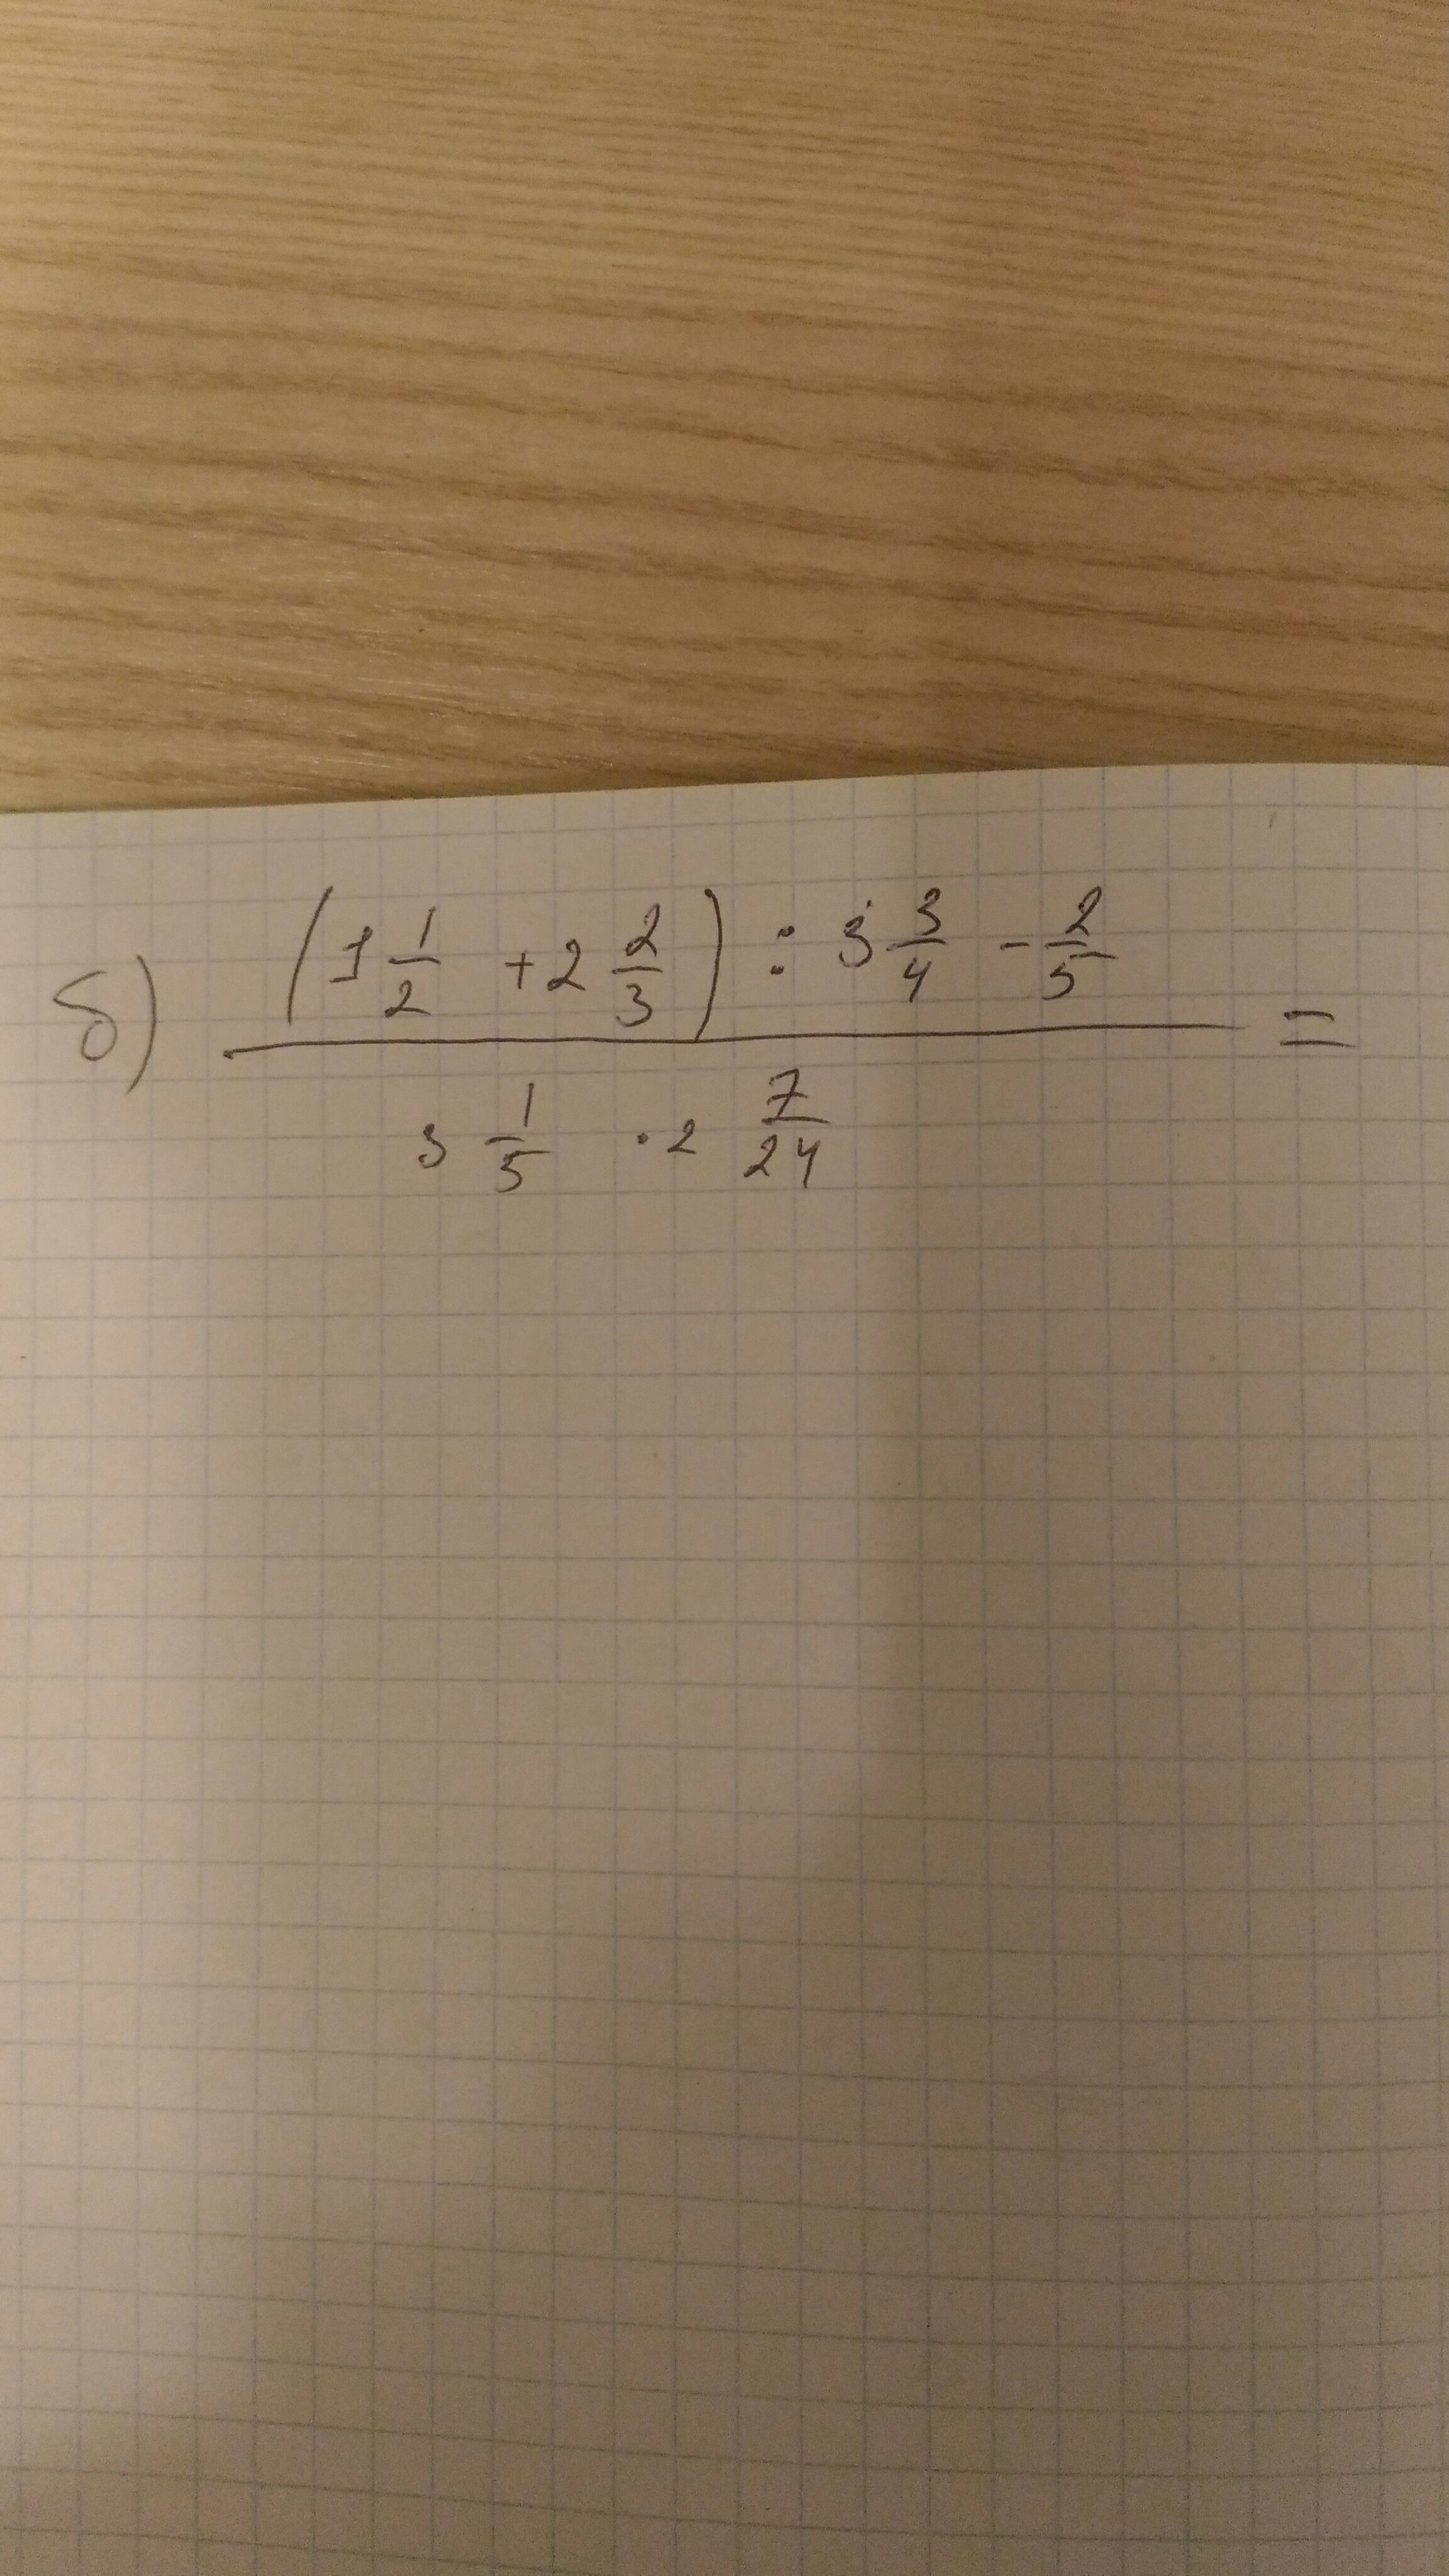 б) (1 1/2 + 2 2/3) : 3 3/4 - 2/5 =
3 1/5 · 2 7/24